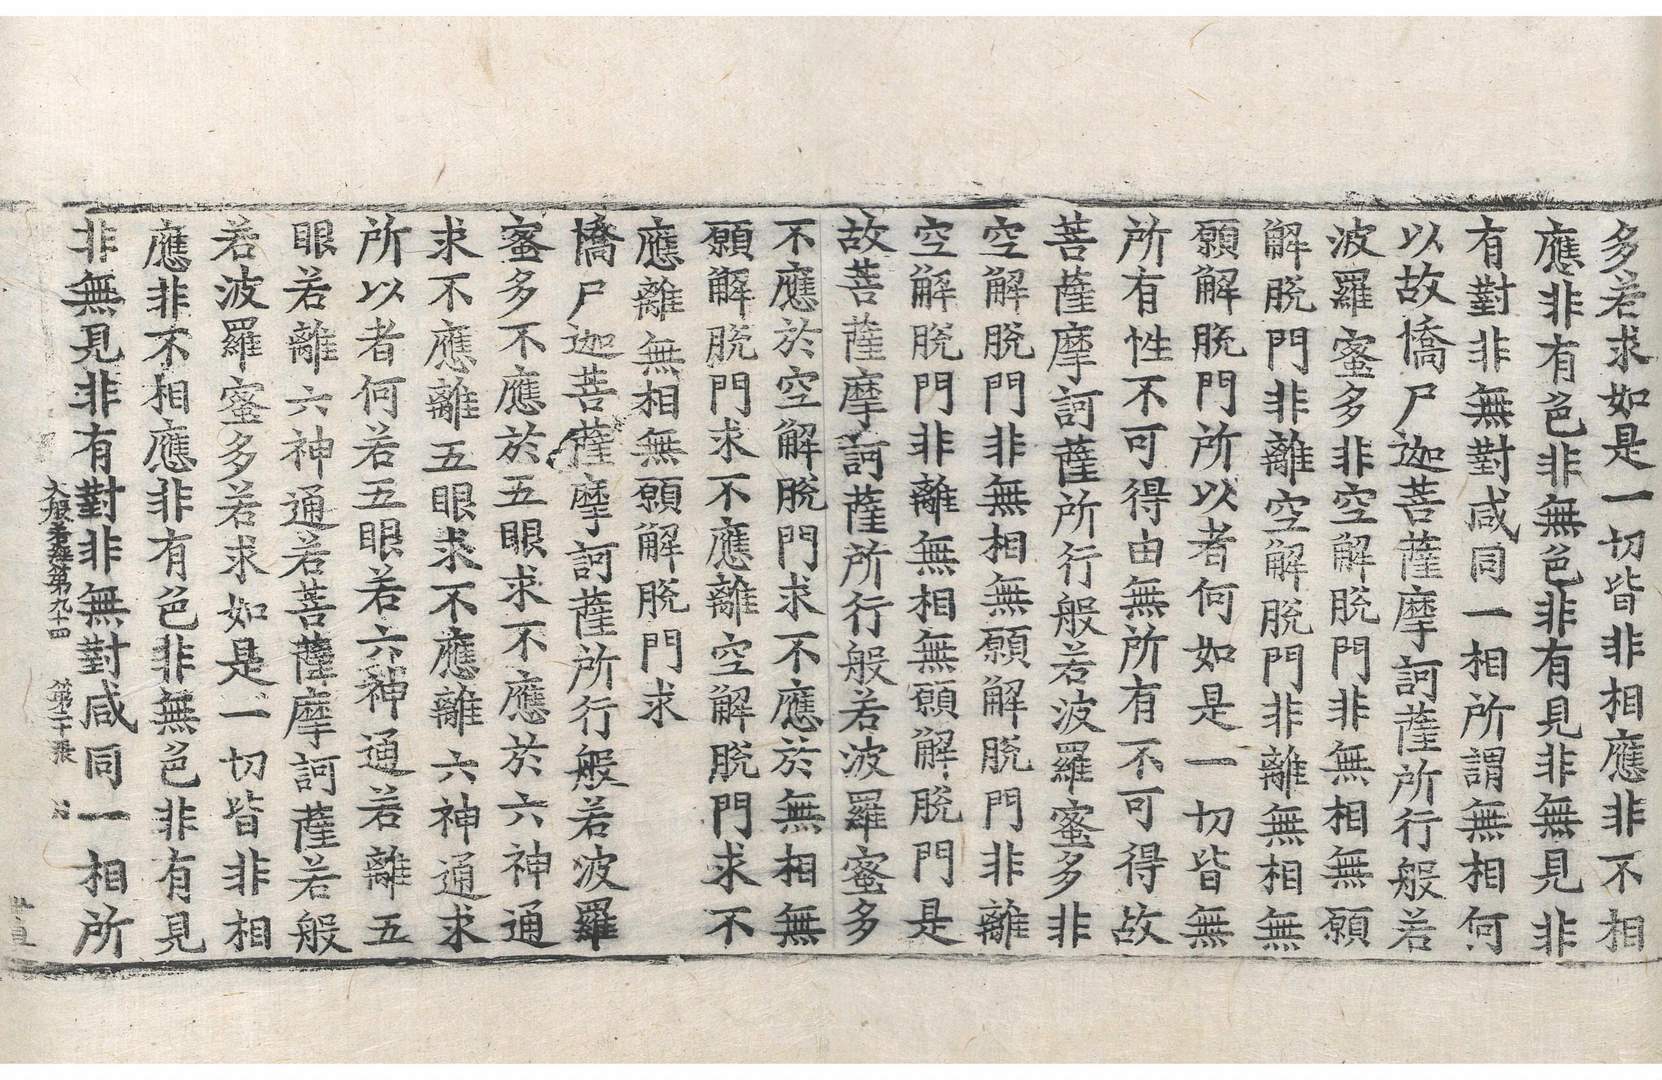 多若求如是一切皆非相應非不相
應非有色非無色非有見非無見非
有對非無對咸同一相所謂無相何
以故憍尸迦菩薩摩訶薩所行般若
波羅蜜多非空解脫門非無相無願
解脫門非離空解脫門非離無相無
願解脫門所以者何如是一切皆無
所有性不可得由無所有不可得故
菩薩摩訶薩所行般若波羅蜜多非
空解脫門非無相無願解脫門非離
空解脫門非離無相無願解脫門是
故菩薩摩訶薩所行般若波羅蜜多
不應於空解脫門求不應於無相無
願解脫門求不應離空解脫門求不
應離無相無願解脫門求
憍尸迦菩薩摩訶薩所行般若波羅
蜜多不應於五眼求不應於六神通
求不應離五眼求不應離六神通求
所以者何若五眼若六神通若離五
眼若離六神通若菩薩摩訶薩若般
若波羅蜜多若求如是一切皆非相
應非不相應非有色非無色非有見
非無見非有對非無對咸同一相所
大般若經第九十四 第二十張